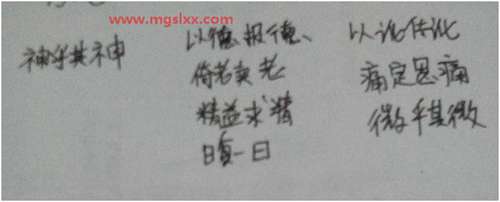 www.mgslxx.com
神乎其神 以德报德、 以讹传讹
倚老卖老 痛定思痛
精益求精 微乎其微
日复一日